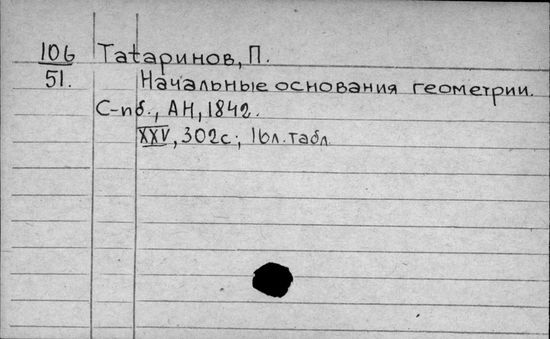 106 Татаринов, П.
51. Начальные основания геометрии.
С-пб., АН, 1842.
XXV, 302с; 16л. табл.